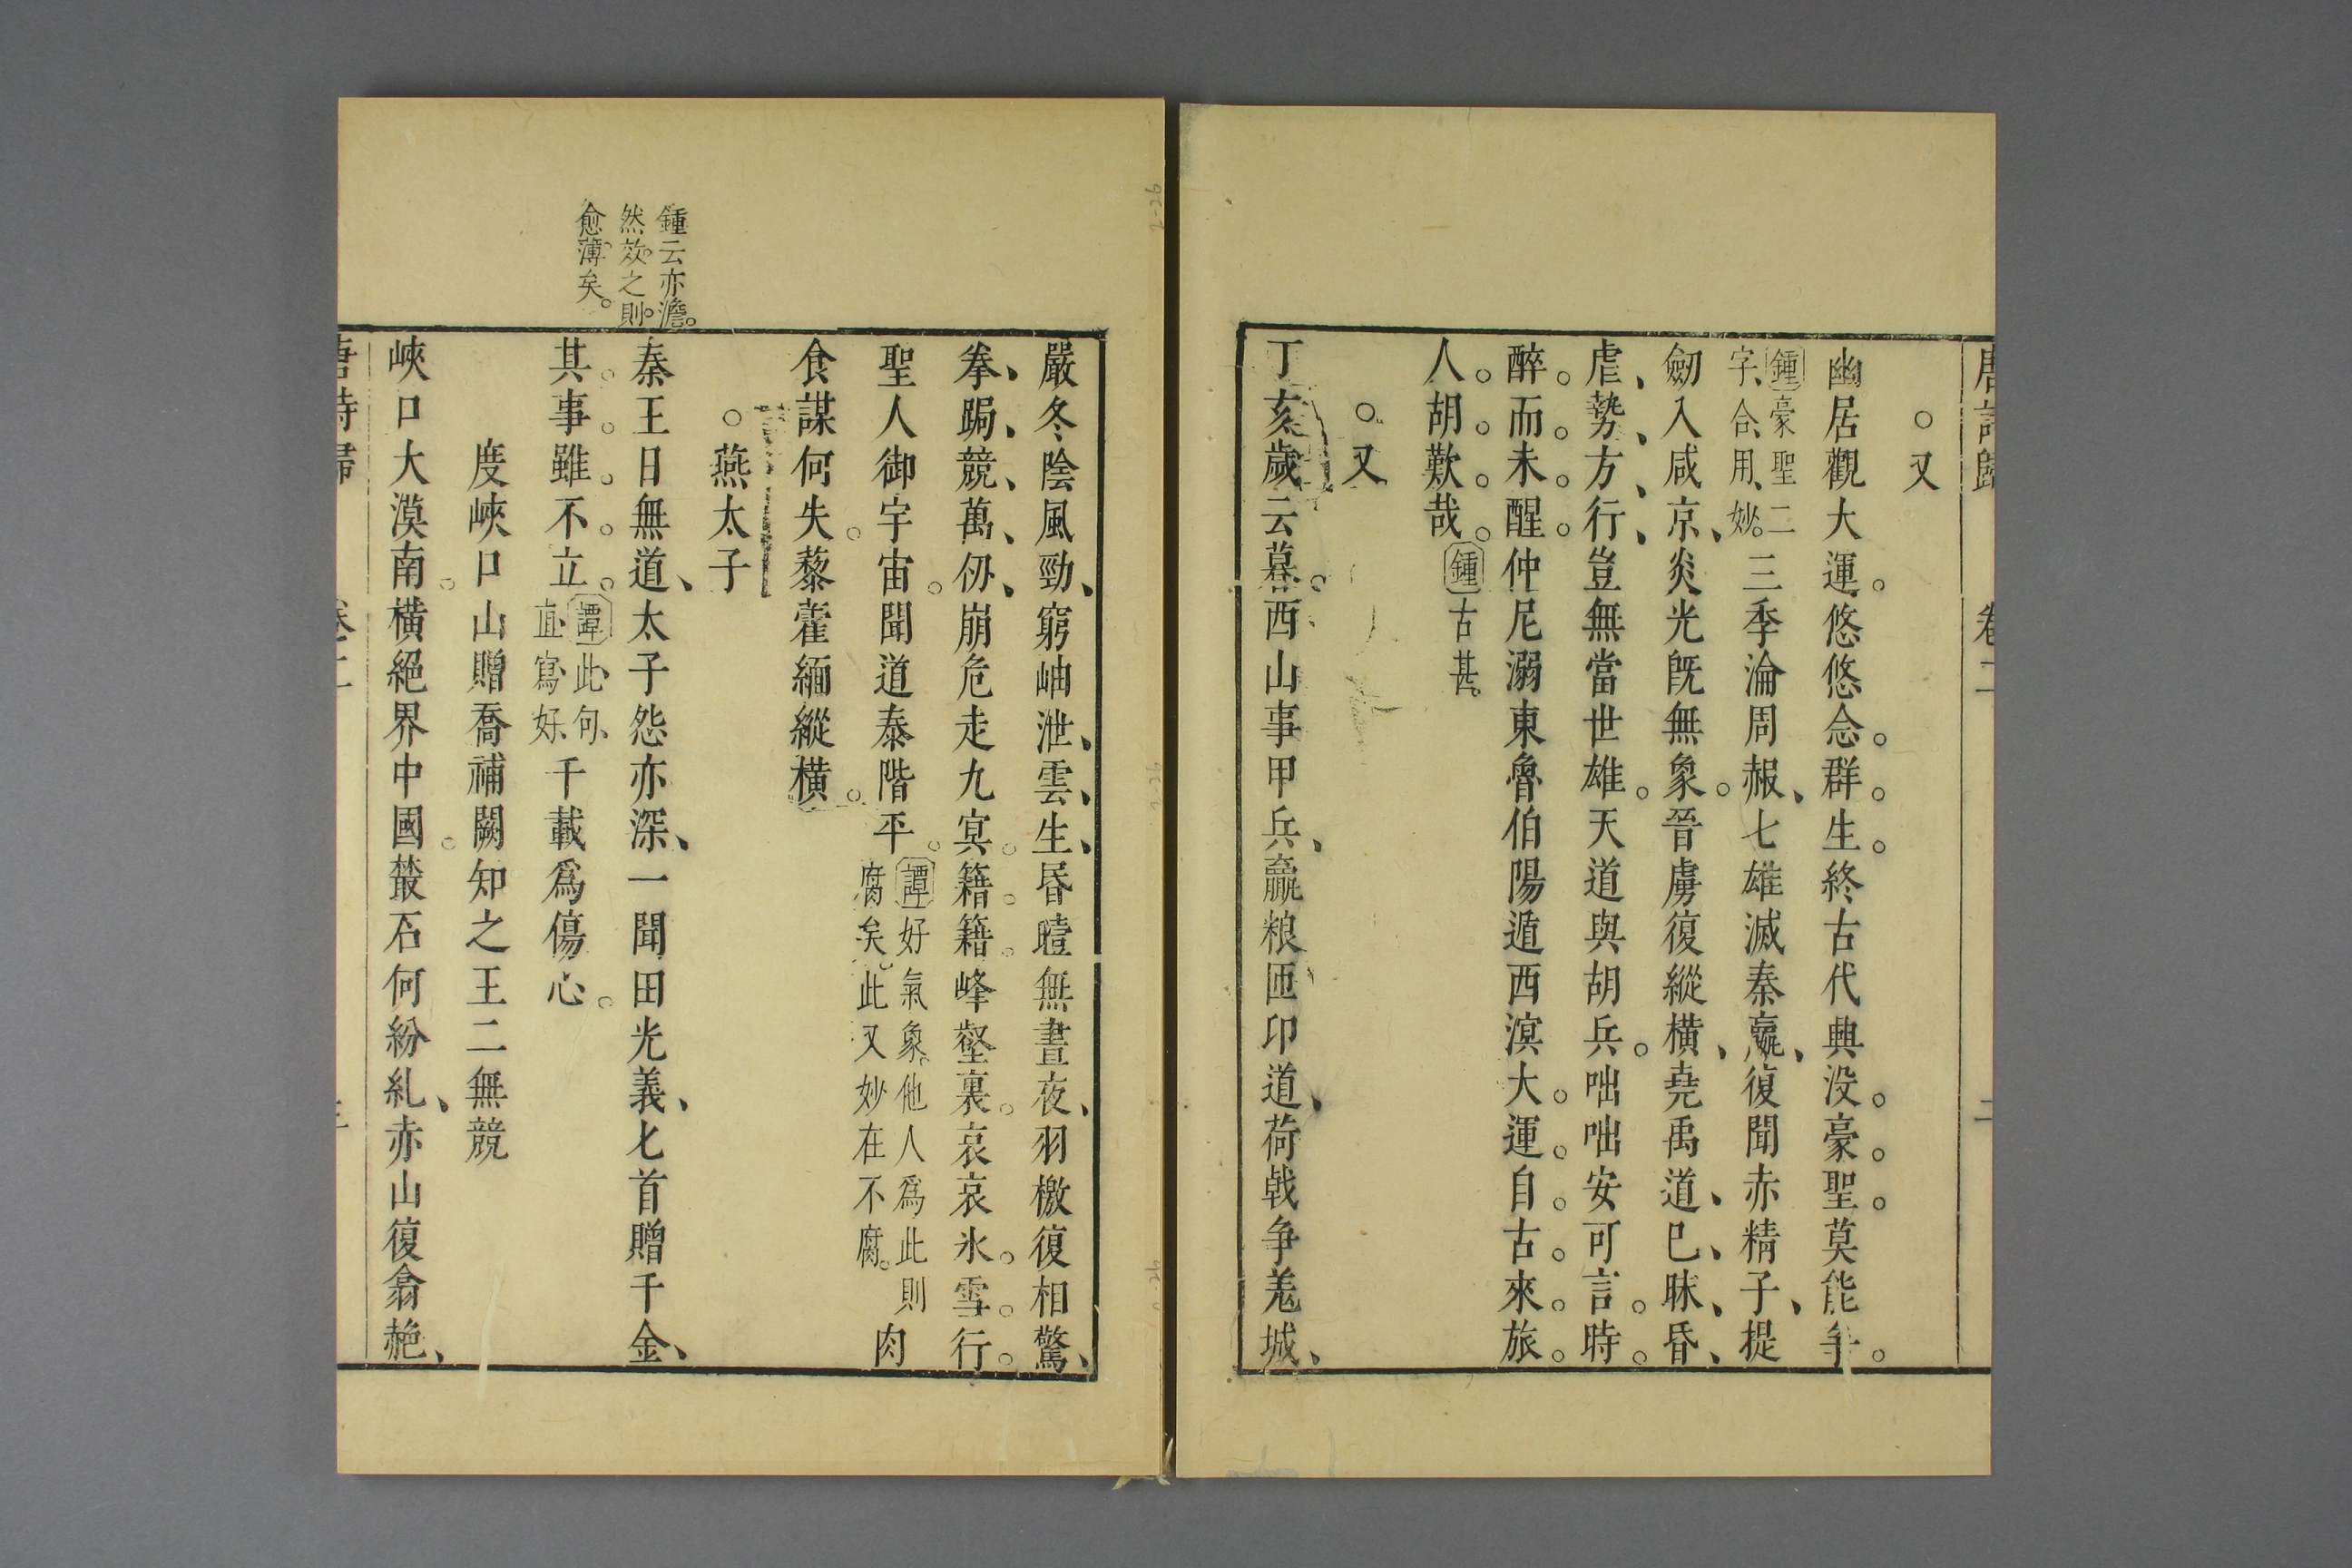 唐詩歸 卷二 二
○又
幽居觀大運。悠悠念。群。生。終古代興没。豪。聖。莫能爭。
鍾豪聖二
字、合、用、妙。
三季淪周赧、七雄滅秦嬴、復聞赤精子、提
劒入咸京、炎光旣無象。晉虜復縱橫、堯禹道、巳、昧、昏、
虐、勢、方、行、豈無當世雄。天道與胡兵。咄咄安可言。時。
醉。而。未。醒。仲尼溺東魯伯陽遁西溟大。運。自。古。來。旅。
人。胡。歎。哉。
鍾古甚。
○又
丁亥歲云暮。西山事甲兵、嬴粮匝卭道、荷戟争羗城、
嚴冬陰風勁、窮岫泄、雲、生、昏曀無晝夜、羽檄復相驚、
拳、跼、競、萬、仞、崩危走九㝠。籍。籍。峰壑裏。哀哀氷。雪。行。
聖人御宇宙。聞道泰階平。
譚好氣象。他人爲此則
腐矣。此又妙在不腐。
肉
食謀何失。藜藿緬縱橫。
○燕太子
秦王日無道、太子怨亦深、一聞田光義、匕首贈千金、
鍾云亦澹。
然。效。之則。
愈薄矣。
其。事。雖。不。立。
譚此、句、
直、寫、好、
千載爲傷心。
度峽口山贈喬補闕知之王二無競
峽口大漠南。橫絕界中國。叢石何紛糺、赤山復翕赩、
唐詩歸 卷二 三